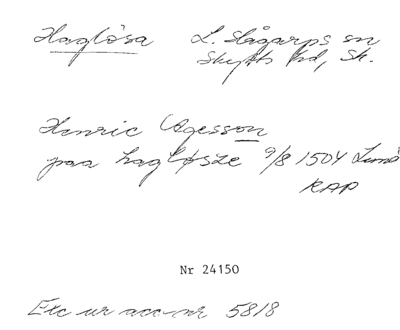 Haglösa L. Slågarps sn
Skytts hd, Sk.
Henric Agesson
paa hagløsze 9/8 1504 Lund
RAP
Nr 24150
Exc ur acc-nr 5818